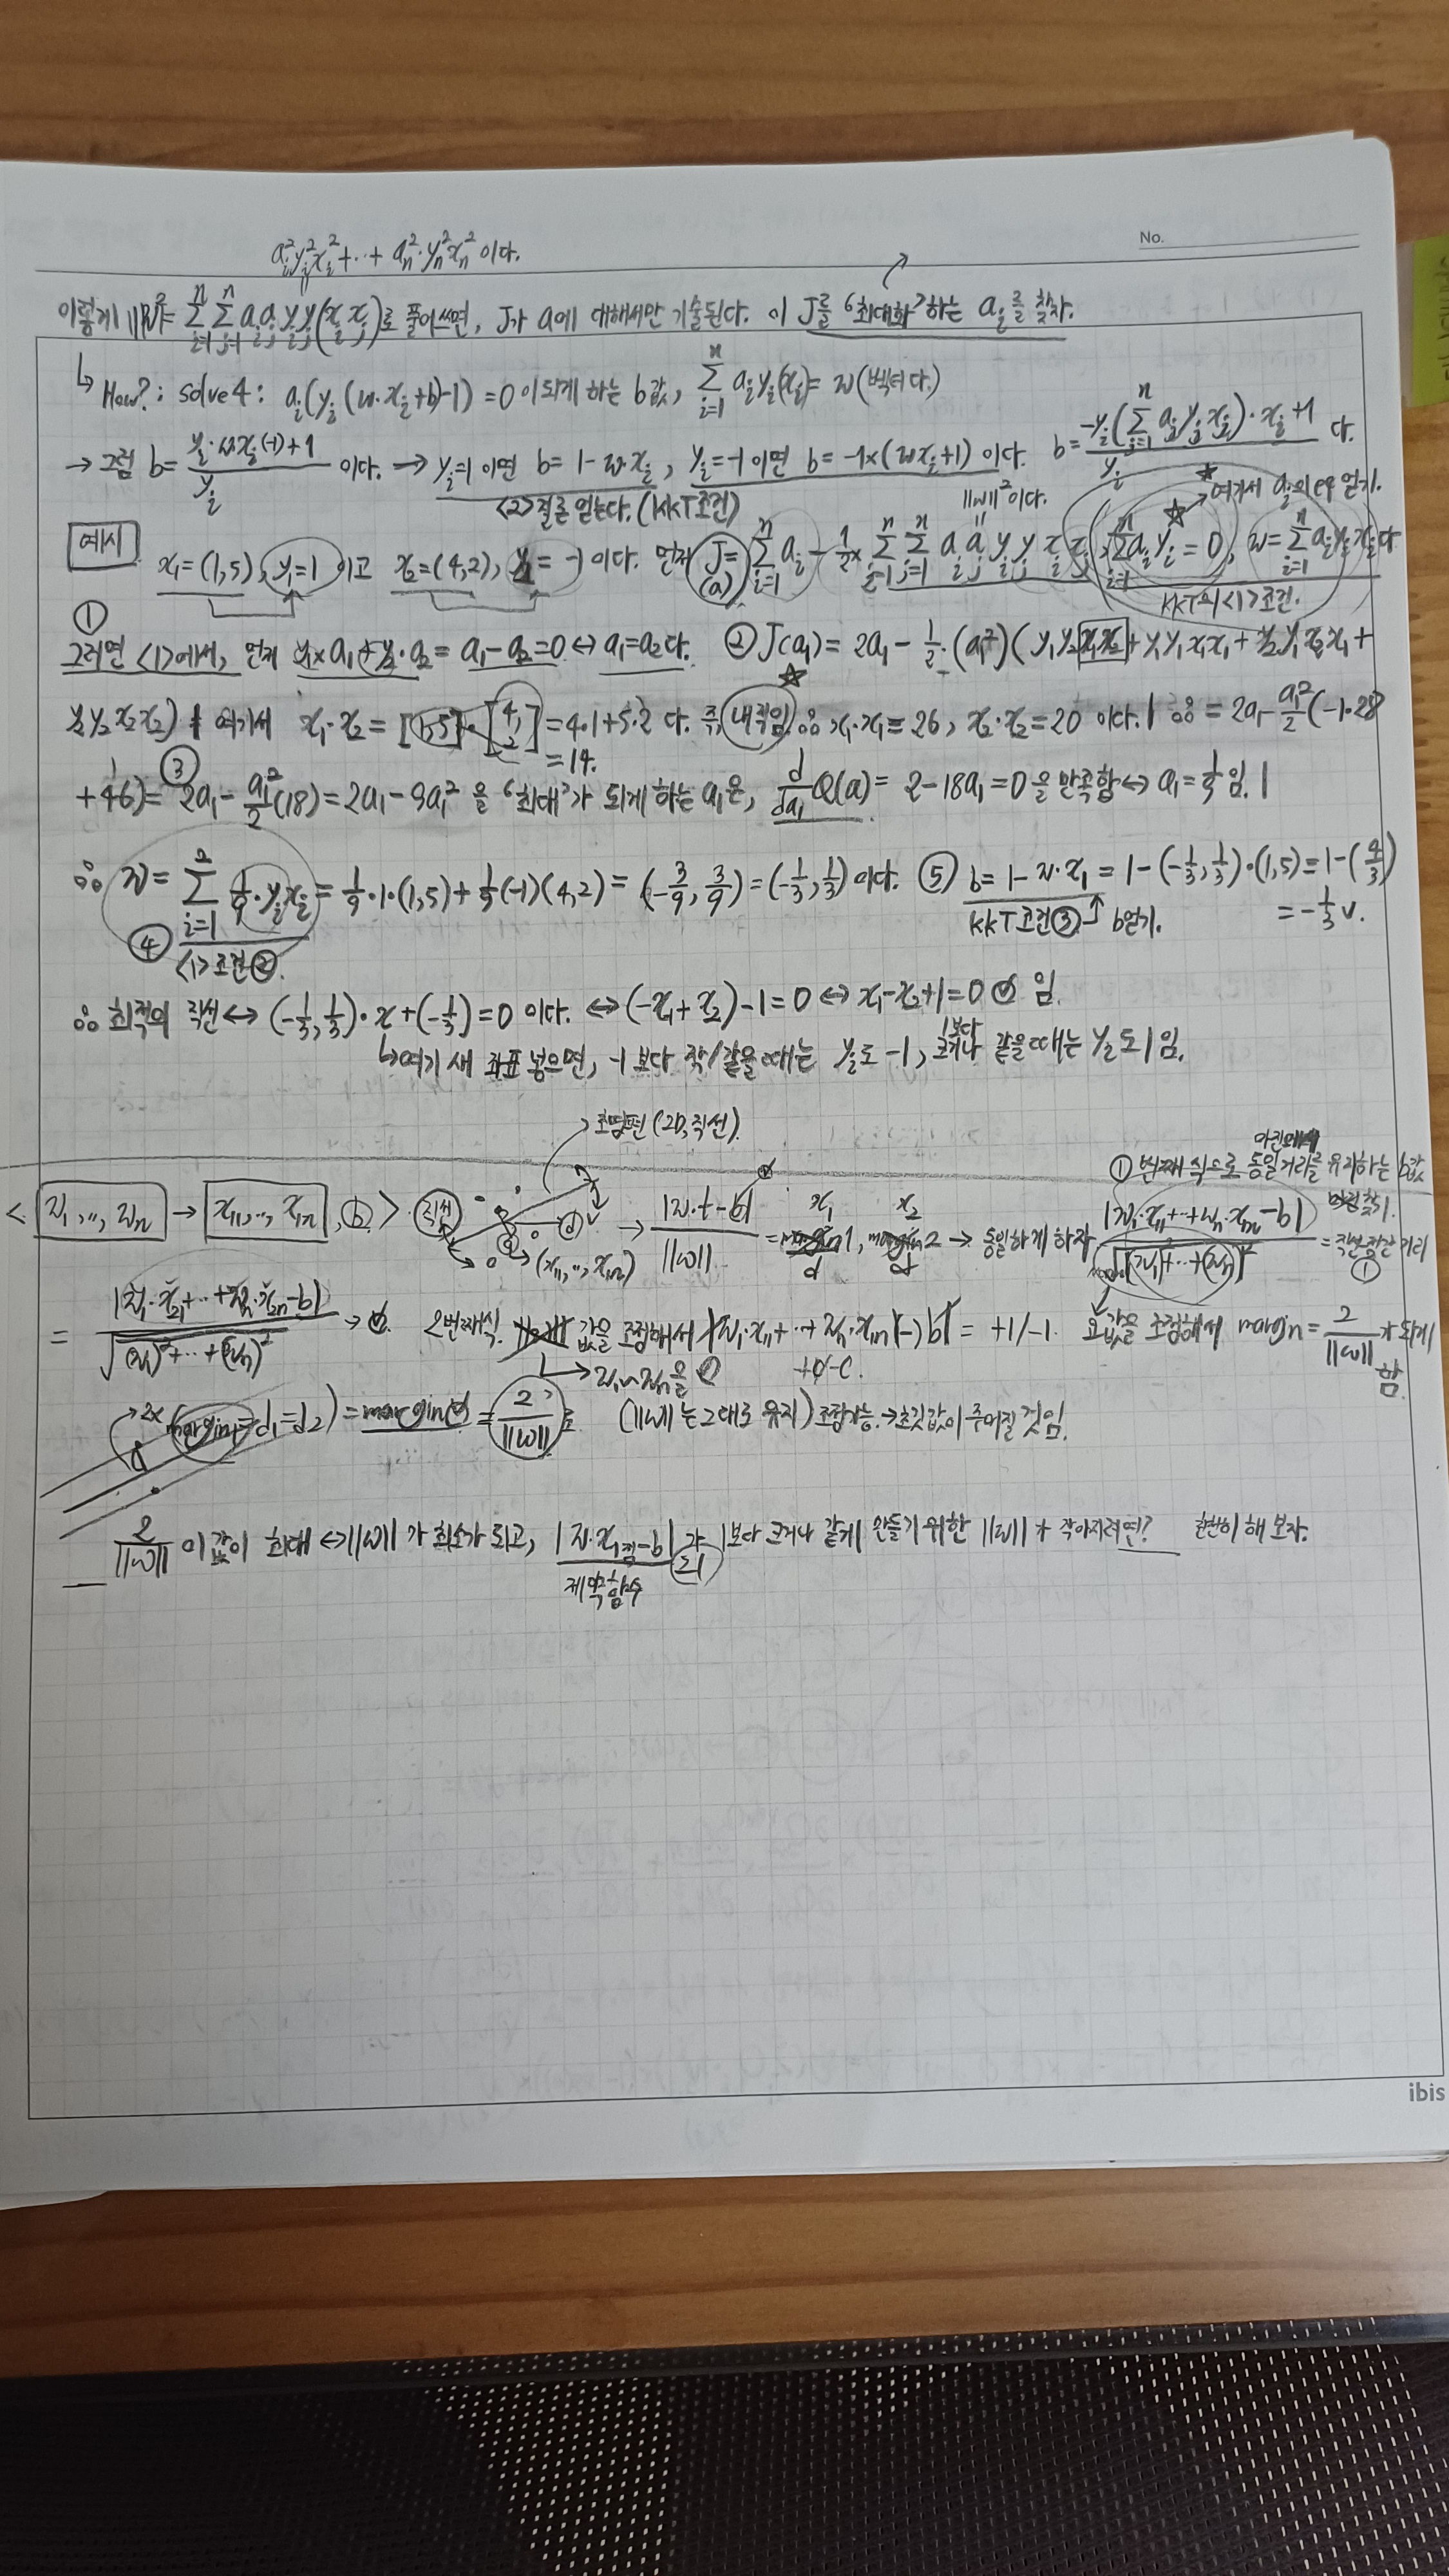 No.
a_i²y_i²x_i²+…+ a_n²·y_n²x_n² 이다.
이렇게 ||w||²= Σ_{i=1}^n Σ_{j=1}^n a_i a_j y_i y_j(x_i x_j)로 풀어쓰면, J가 a에 대해서만 기술된다. 이 J를 '최대화'하는 a_i를 찾자.
↳ How? : solve 4 : a_i(y_i(w·x_i+b)-1)=0이 되게 하는 b값, Σ_{i=1}^n a_i y_i(x_i)= w(벡터다.)
→ 그럼 b= (y_i·wx_i(-1)+1)/y_i 이다. → y_i=1 이면 b= 1-w·x_i, y_i=-1 이면 b= -1×(wx_i+1) 이다. b= (-y_i(Σ_{j=1}^n a_j y_j x_j)·x_i+1)/y_i 다.
<2>절른 얻는다. (KKT 조건) ||w||²이다. ☆→여기서 a_i의 eq 얻기.
예시 x₁=(1,5), y₁=1 이고 x₂=(4,2), y₂=-1 이다. 먼저 J(a)= Σ_{i=1}^n a_i - ½× Σ_{i=1}^n Σ_{j=1}^n a_i a_j y_i y_j x_i x_j, Σ_{i=1}^n a_i y_i=0, w=Σ_{i=1}^n a_i y_i x_i다
KKT의 <1>조건.
① 그러면 <1>에서, 먼저 y₁×a₁+y₂·a₂= a₁-a₂=0 ↔ a₁=a₂다. ② J(a₁)= 2a₁ - ½·(a₁²)(y₁y₂x₁x₂+y₁y₁x₁x₁+y₂y₁x₂x₁+
y₂y₂x₂x₂) | 여기서 x₁·x₂= [1,5]·[4,2]=4·1+5·2 다. 즉, 내적임 ∴ x₁·x₁=26, x₂·x₂=20 이다. | ∴ = 2a₁-a₁²/2(-1·28
=14.
+46)= ③ 2a₁ - a₁²/2(18)=2a₁-9a₁² 을 '최대'가 되게 하는 a₁은, d/da₁ Q(a)= 2-18a₁=0을 만족함↔a₁=1/9임. |
∴ w= Σ_{i=1}^2 1/9·y_i x_i= 1/9·1·(1,5)+1/9(-1)(4,2)= (-3/9, 3/9)=(-1/3, 1/3) 이다. ⑤ b=1-w·x₁ = 1-(-1/3, 1/3)·(1,5)=1-(4/3)
④ <1>조건②. KKT조건③ ↑ b얻기. = -1/3 v.
∴ 최적의 직선↔(-1/3, 1/3)·x+(-1/3)=0 이다. ↔(-x₁+x₂)-1=0 ↔ x₁-x₂+1=0 임.
↳여기 새 좌표 넣으면, -1 보다 작/같을때는 y_i도 -1, 1보다 크거나 같을때는 y_i도 1임.
초평면 (2D, 직선).
① 번째 식으로 동일거리를 유지하는 b값
< w₁,…,w_n → x₁₁,…,x₁n, b > 직선 (x₁₁,…,x₁n) → |w·t-b|/||w|| = x₁ d, x₂ d → 동일하게 하자 |w₁·x₁₁+…+w_n·x₁n-b|/√((w₁)²+…+(w_n)²) = 직선 점간 거리 ①
= |w₁·x₂₁+…+w_n·x₂n-b|/√((w₁)²+…+(w_n)²) → 2번째식. 값을 조정해서 |w₁·x₁₁+…+w_n·x₁n(-)b|= +1/-1. 요값을 조정해서 margin= 2/||w||가 되게 함.
w₁~w_n을 +d/-c.
2×(margin=d₁=d₂)=margin = 2/||w||로 (||w||는 그대로 유지) 조정가능.→초깃값이 주어질 것임.
2/||w|| 이 값이 최대↔||w||가 최소가 되고, |w·x₁점-b|가 ≥1 1보다 크거나 같게 만들기 위한 ||w||가 작아지려면? 천천히 해 보자.
제약함수
ibis